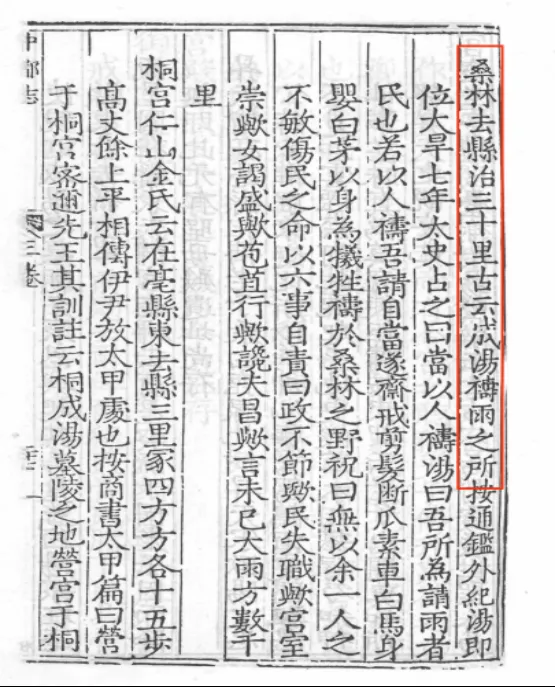 桑林去縣治三十里古云成湯禱雨之所按通鑑外紀湯即
位大旱七年太史占之曰當以人禱湯曰吾所為請雨者
民也若以人禱吾請自當遂齋戒剪髮断爪素車白馬身
嬰白茅以身為犧牲禱於桑林之野祝曰無以余一人之
不敏傷民之命以六事自責曰政不節歟民失職歟宮室
崇歟女謁盛歟苞苴行歟讒夫昌歟言未已大雨方數千
里
桐宮仁山金氏云在亳縣東去縣三里冢四方方各十五步
高丈餘上平相傳伊尹放太甲處也按商書太甲篇曰營
于桐宮密邇先王其訓註云桐成湯墓陵之地營宮于桐
中都志
三卷